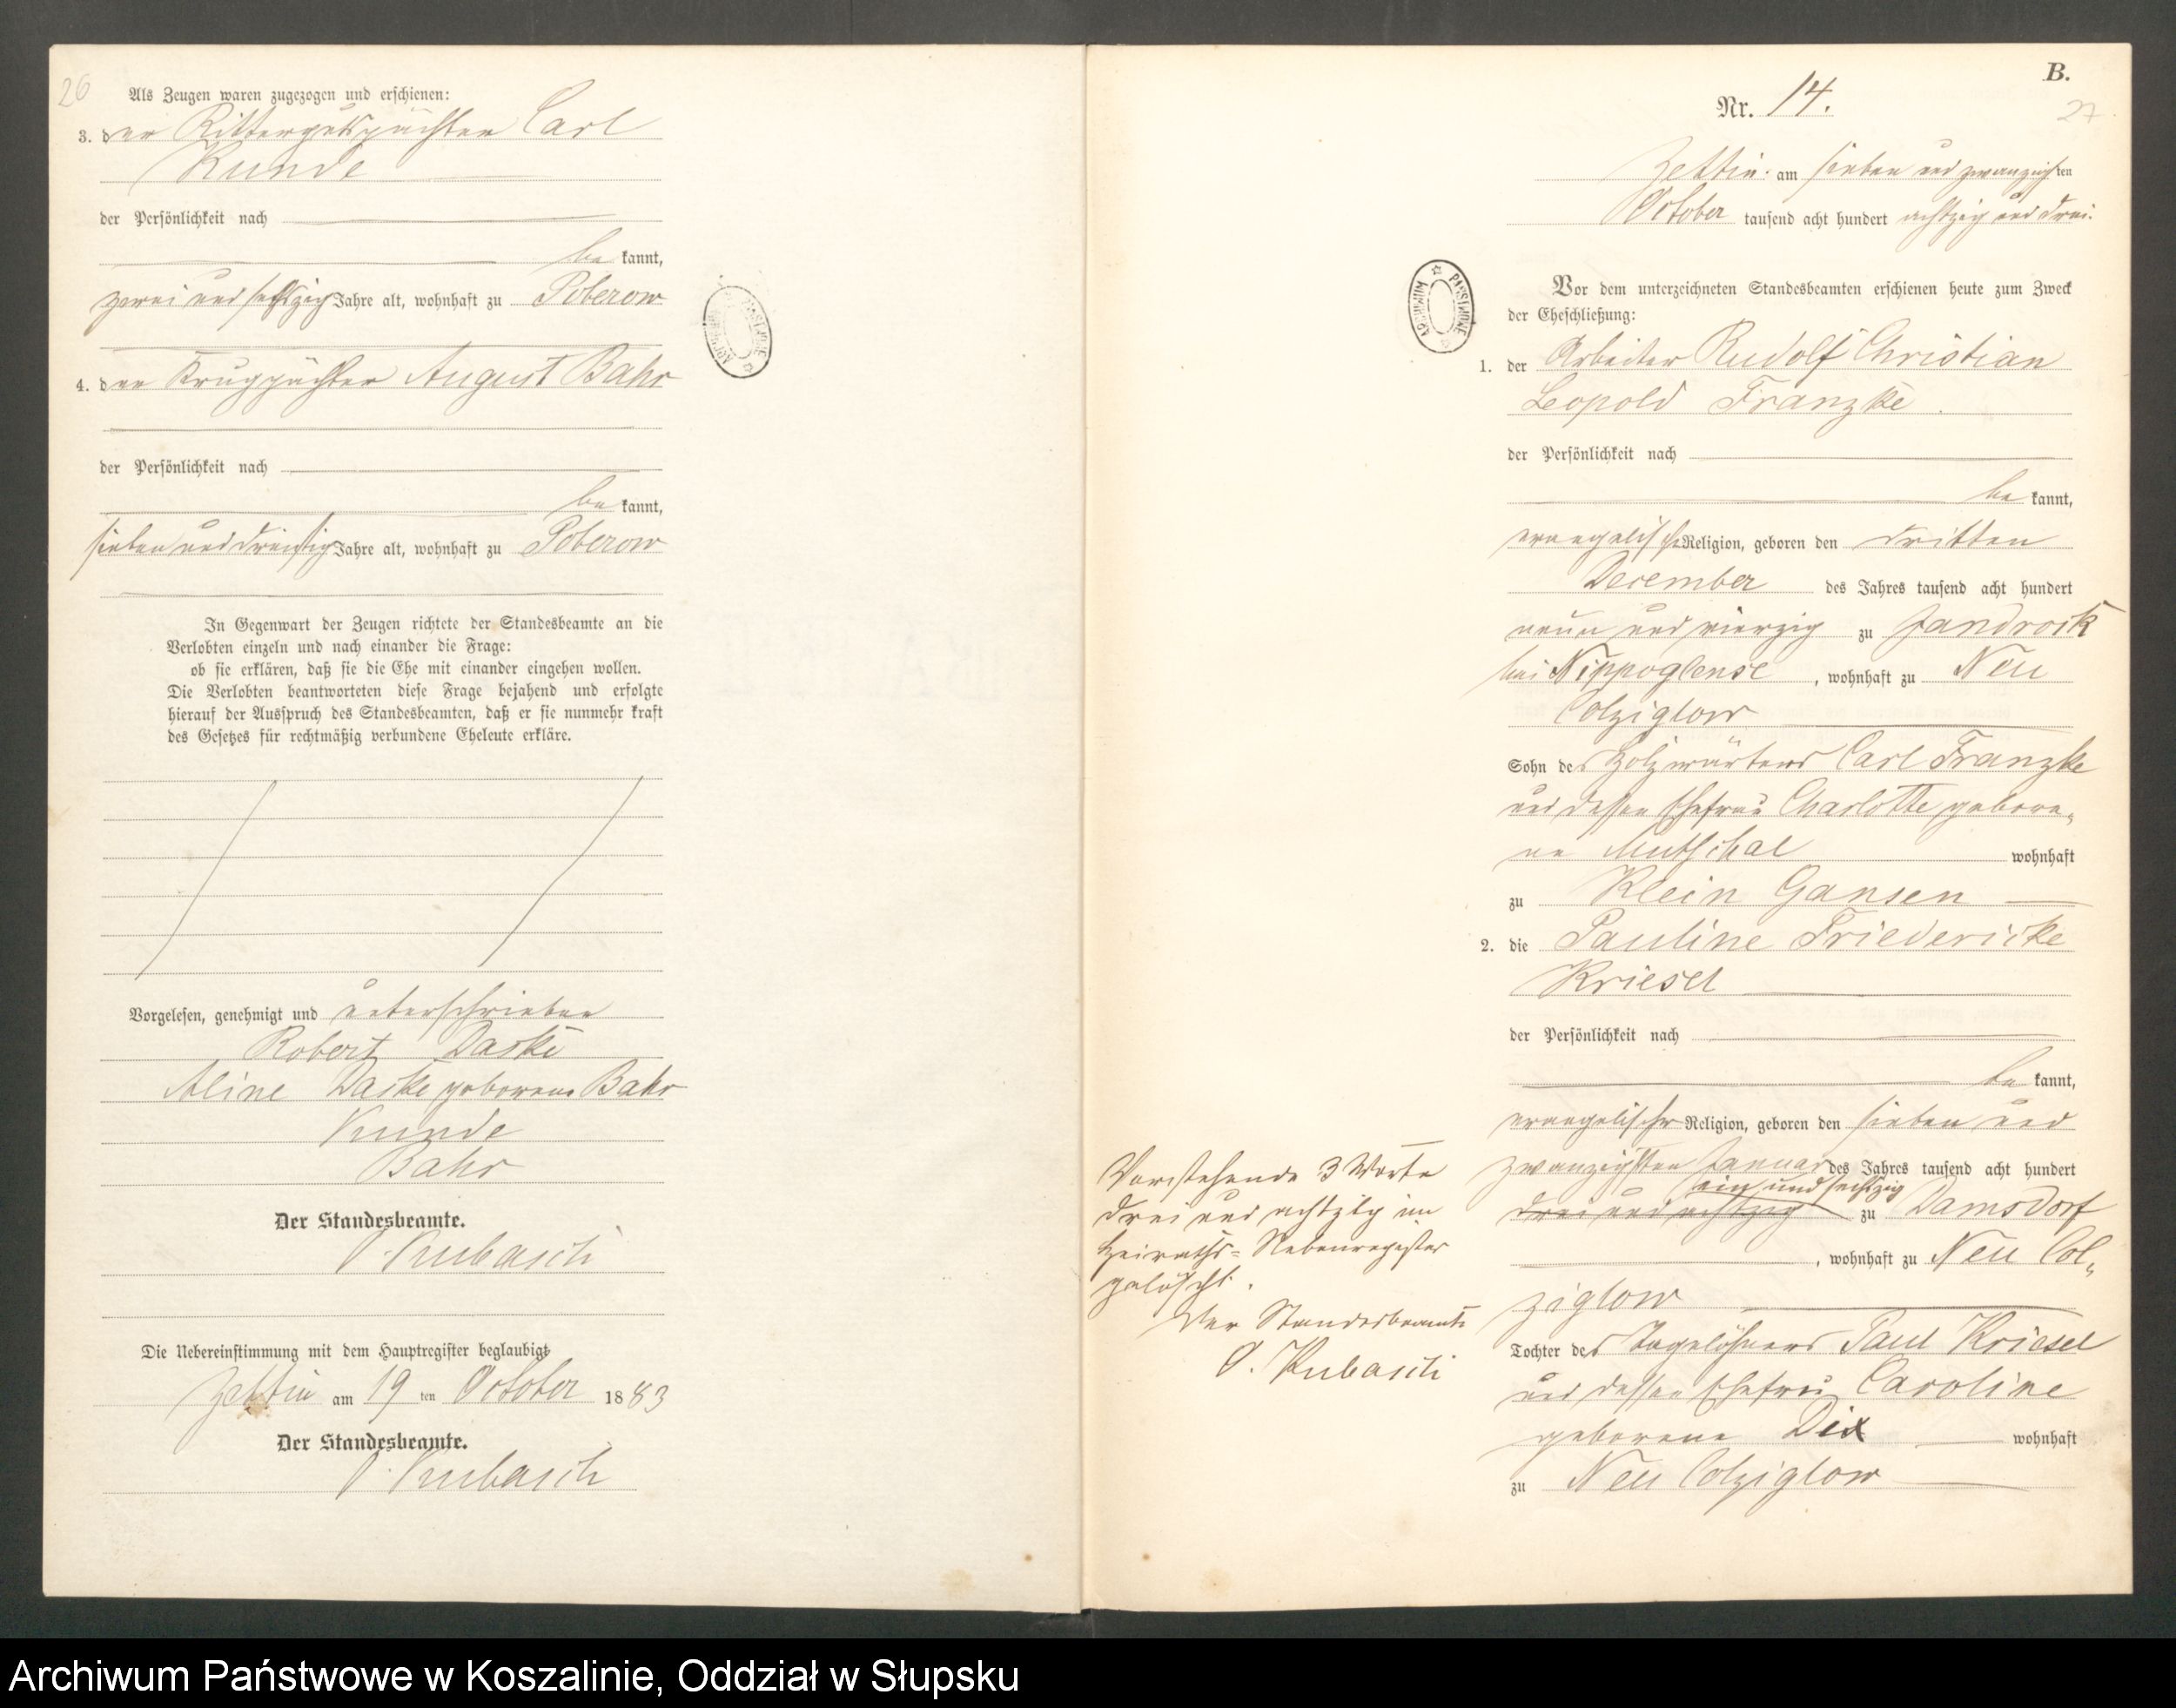 26
Als Zeugen waren zugezogen und erschienen:
3. der Rittergutspächter Carl
Kunde
der Persönlichkeit nach
be kannt,
zwei und sechszig Jahre alt, wohnhaft zu Poberow
4. der Krugpächter August Bahr
der Persönlichkeit nach
be kannt,
sieben und dreißig Jahre alt, wohnhaft zu Poberow
In Gegenwart der Zeugen richtete der Standesbeamte an die
Verlobten einzeln und nach einander die Frage:
ob sie erklären, daß sie die Ehe mit einander eingehen wollen.
Die Verlobten beantworteten diese Frage bejahend und erfolgte
hierauf der Ausspruch des Standesbeamten, daß er sie nunmehr kraft
des Gesetzes für rechtmäßig verbundene Eheleute erkläre.
Vorgelesen, genehmigt und unterschrieben
Robert Daske
Aline Daske geborene Bahr
Kunde
Bahr
Der Standesbeamte.
O. Kubasch
Die Uebereinstimmung mit dem Hauptregister beglaubigt
Zettin am 19 ten October 1883
Der Standesbeamte.
O. Kubasch
B.
27
Nr. 14.
Zettin am sieben und zwanzigsten
October tausend acht hundert achtzig und drei.
Vor dem unterzeichneten Standesbeamten erschienen heute zum Zweck
der Eheschließung:
1. der Arbeiter Rudolf Christian
Leopold Franzke.
der Persönlichkeit nach
be kannt,
evangelischer Religion, geboren den dritten
December des Jahres tausend acht hundert
neun und vierzig zu Jandrock
bei Nippoglense, wohnhaft zu Neu
Colziglow
Sohn des Holzwärters Carl Franzke
und dessen Ehefrau Charlotte gebore-
ne Mutschal wohnhaft
zu Klein Gansen
2. die Pauline Friedericke
Kriesel
der Persönlichkeit nach
be kannt,
evangelischer Religion, geboren den sieben und
zwanzigsten Januar des Jahres tausend acht hundert
ein und sechszig
drei und achtzig zu Damsdorf
, wohnhaft zu Neu Col-
ziglow
Tochter des Tagelöhners Paul Kriesel
und dessen Ehefrau Caroline
geborene Dix wohnhaft
zu Neu Colziglow
Vorstehende 3 Worte
drei und achtzig im
Heiraths-Nebenregister
gelöscht.
Der Standesbeamte
O. Kubasch
ARCHIWUM PAŃSTWOWE
ARCHIWUM PAŃSTWOWE
Archiwum Państwowe w Koszalinie, Oddział w Słupsku